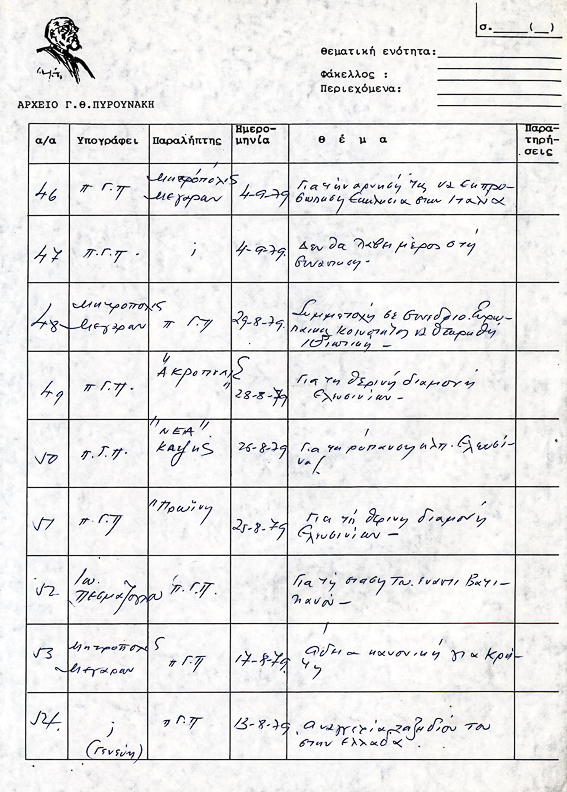 σ.____(__)
Θεματική ενότητα:
Φάκελλος :
Περιεχόμενα:
ΑΡΧΕΙΟ Γ.Θ.ΠΥΡΟΥΝΑΚΗ
α/α Υπογράφει Παραλήπτης Ημερομηνία θέμα Παρατηρήσεις
46 π Γ.Π Μητρόπολις
Μεγάρων 4-9-79 Για την αρνησή της να εκπρο-
σωπηση Εκκλησία στην Ιταλία
47 π.Γ.Π. ; 4-9-79. Δεν θα λάβει μέρος στη
συνάντηση.
48 Μητροπολις
Μεγαρων π Γ.Π 29-8-79. Συμμετοχή σε Συνέδριο Ευρω-
παικης Κοινοτητος να θεωρηθή
ιδιωτική —
49 π Γ.Π. "Ακροπολις
" 28-8-79 Για τη θερινή διαμονή
Ελευσινίων. —
50 π.Γ.Π. "ΝΕΑ"
26-8-79 Για τη ρύπανση κλπ. Ελευσί-
νας
51 π Γ.Π "Πρωϊνη 25-8-79 Για τη θερινη διαμονή
Ελευσινίων —
52 Ιω.
Πεσμαζογλου π.Γ.Π. Για τη σταση Του έναντι Βατι-
κανού —
53 Μητροπολις
Μεγαρων π Γ.Π 17-8-79. Αδεια κανονική για Κρή-
τη
54. ;
(Γενεύη) π Γ.Π 13-8-79. Αναγγελία ταξιδίου του
στην Ελλαδα.